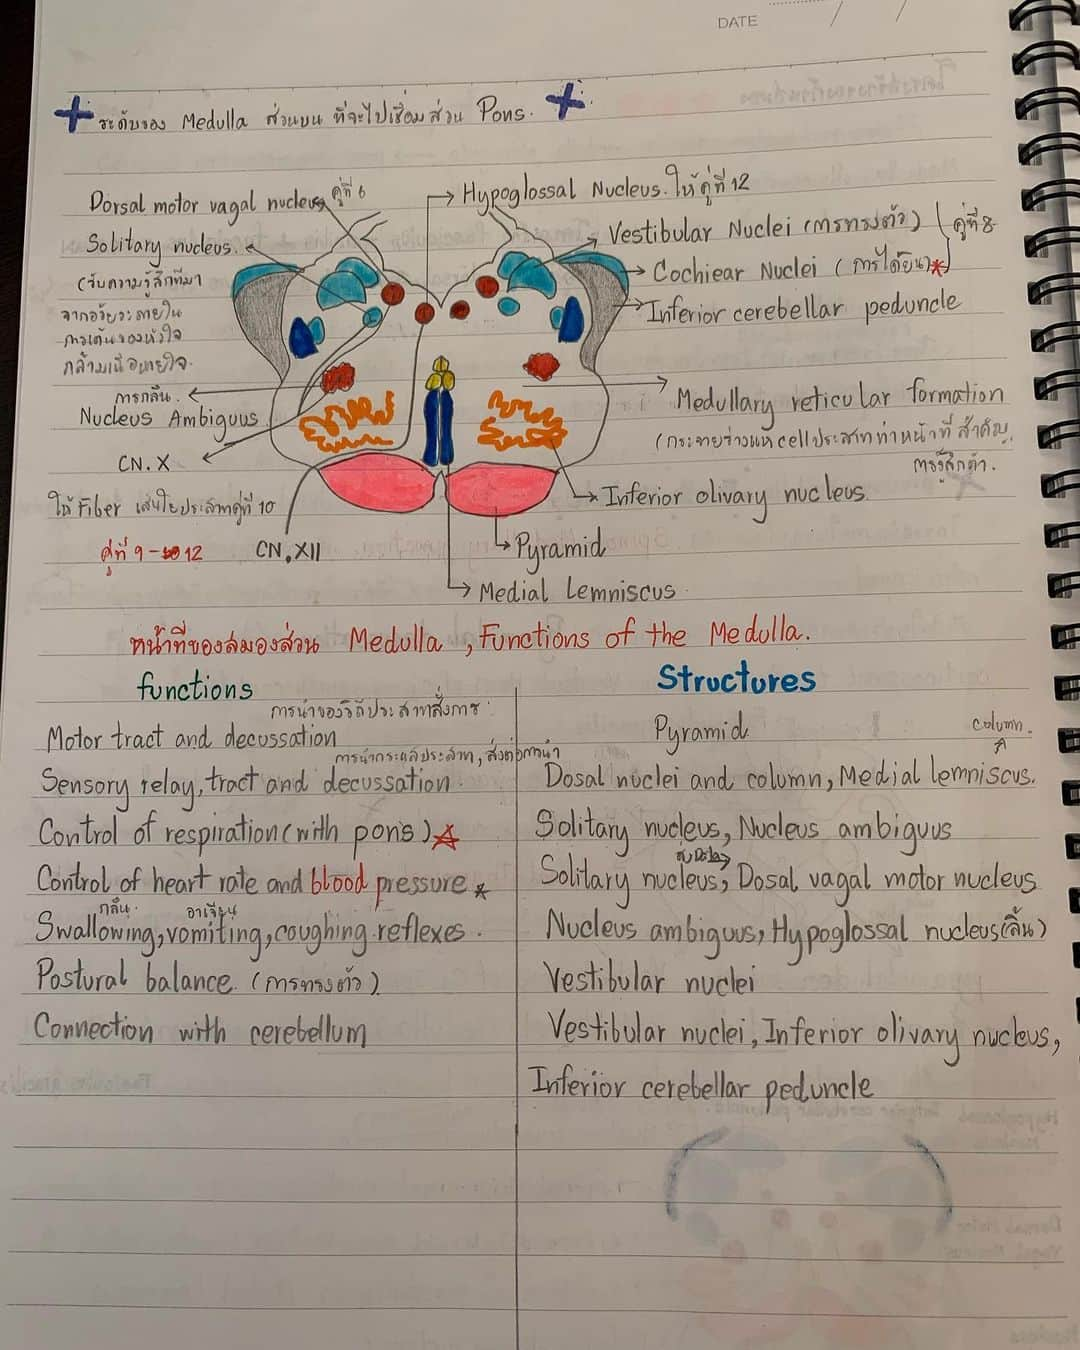 DATE / /
ระดับของ Medulla ส่วนบน ที่จะไปเชื่อมส่วน Pons.
Dorsal motor vagal nucleus คู่ที่ 6
Hypoglossal Nucleus. ให้คู่ที่ 12
Solitary nucleus.
Vestibular Nuclei (การทรงตัว) คู่ที่ 8
(รับความรู้สึกที่มา
Cochiear Nuclei (การได้ยิน)
จากอวัยวะภายใน
Inferior cerebellar peduncle
การเต้นของหัวใจ
กล้ามเนื้อหายใจ.
การกลืน.
Nucleus Ambiguus
Medullary reticular formation
(กระจายร่างแห cell ประสาท ทำหน้าที่ สำคัญ
การรู้สึกตัว.
CN.X
ให้ Fiber เส้นใยประสาทคู่ที่ 10
Inferior olivary nucleus
คู่ที่ 9 - 12
CN.XII
Pyramid
Medial Lemniscus
หน้าที่ของสมองส่วน Medulla , Functions of the Medulla.
functions
Structures
การนำของวิถีประสาทสั่งการ
Motor tract and decussation
Pyramid
column.
การนำกระแสประสาท, ส่งต่อการนำ
Sensory relay, tract and decussation.
Dosal nuclei and column, Medial lemniscus.
Control of respiration (with pons)
Solitary nucleus, Nucleus ambiguus
Control of heart rate and blood pressure
Solitary nucleus, Dosal vagal motor nucleus
กลืน. อาเจียน
Swallowing, vomiting, coughing reflexes.
Nucleus ambiguus, Hypoglossal nucleus (ลิ้น)
Postural balance. (การทรงตัว)
Vestibular nuclei
Connection with cerebellum
Vestibular nuclei, Inferior olivary nucleus,
Inferior cerebellar peduncle